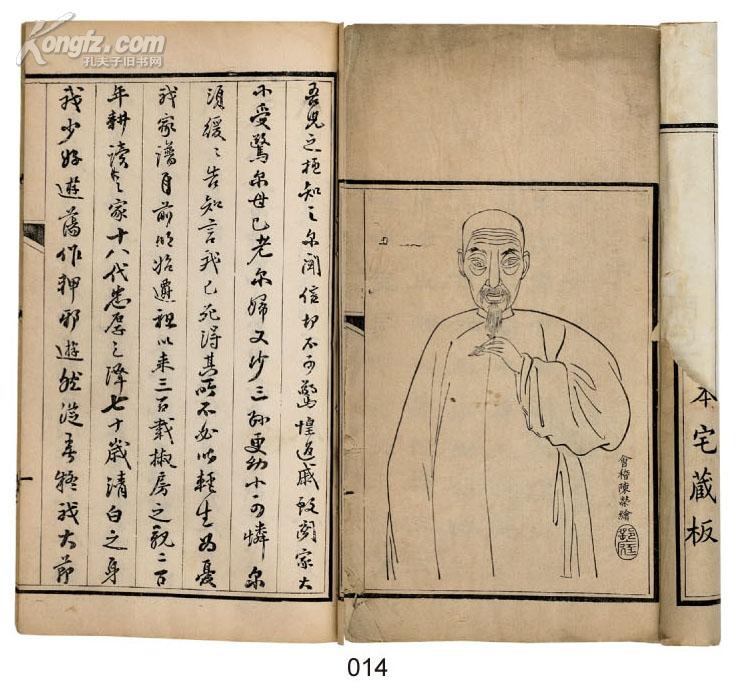 Kongfz.com
孔夫子旧书网
本宅藏板
會稽陳榮繪
吾兒之桓知之尔聞信切不可驚惶過戚致闔家大
小受驚尔母已老尔婦又少三孫更幼小可憐尔
須緩々告知言我已死得其所不必以輕生為憂
我家譜自前明始遷祖以來三百載椒房之親二百
年耕讀之家十八代忠厚之澤七十歲清白之身
我少好遊蕩作狎邪遊然從無疑我大節
014